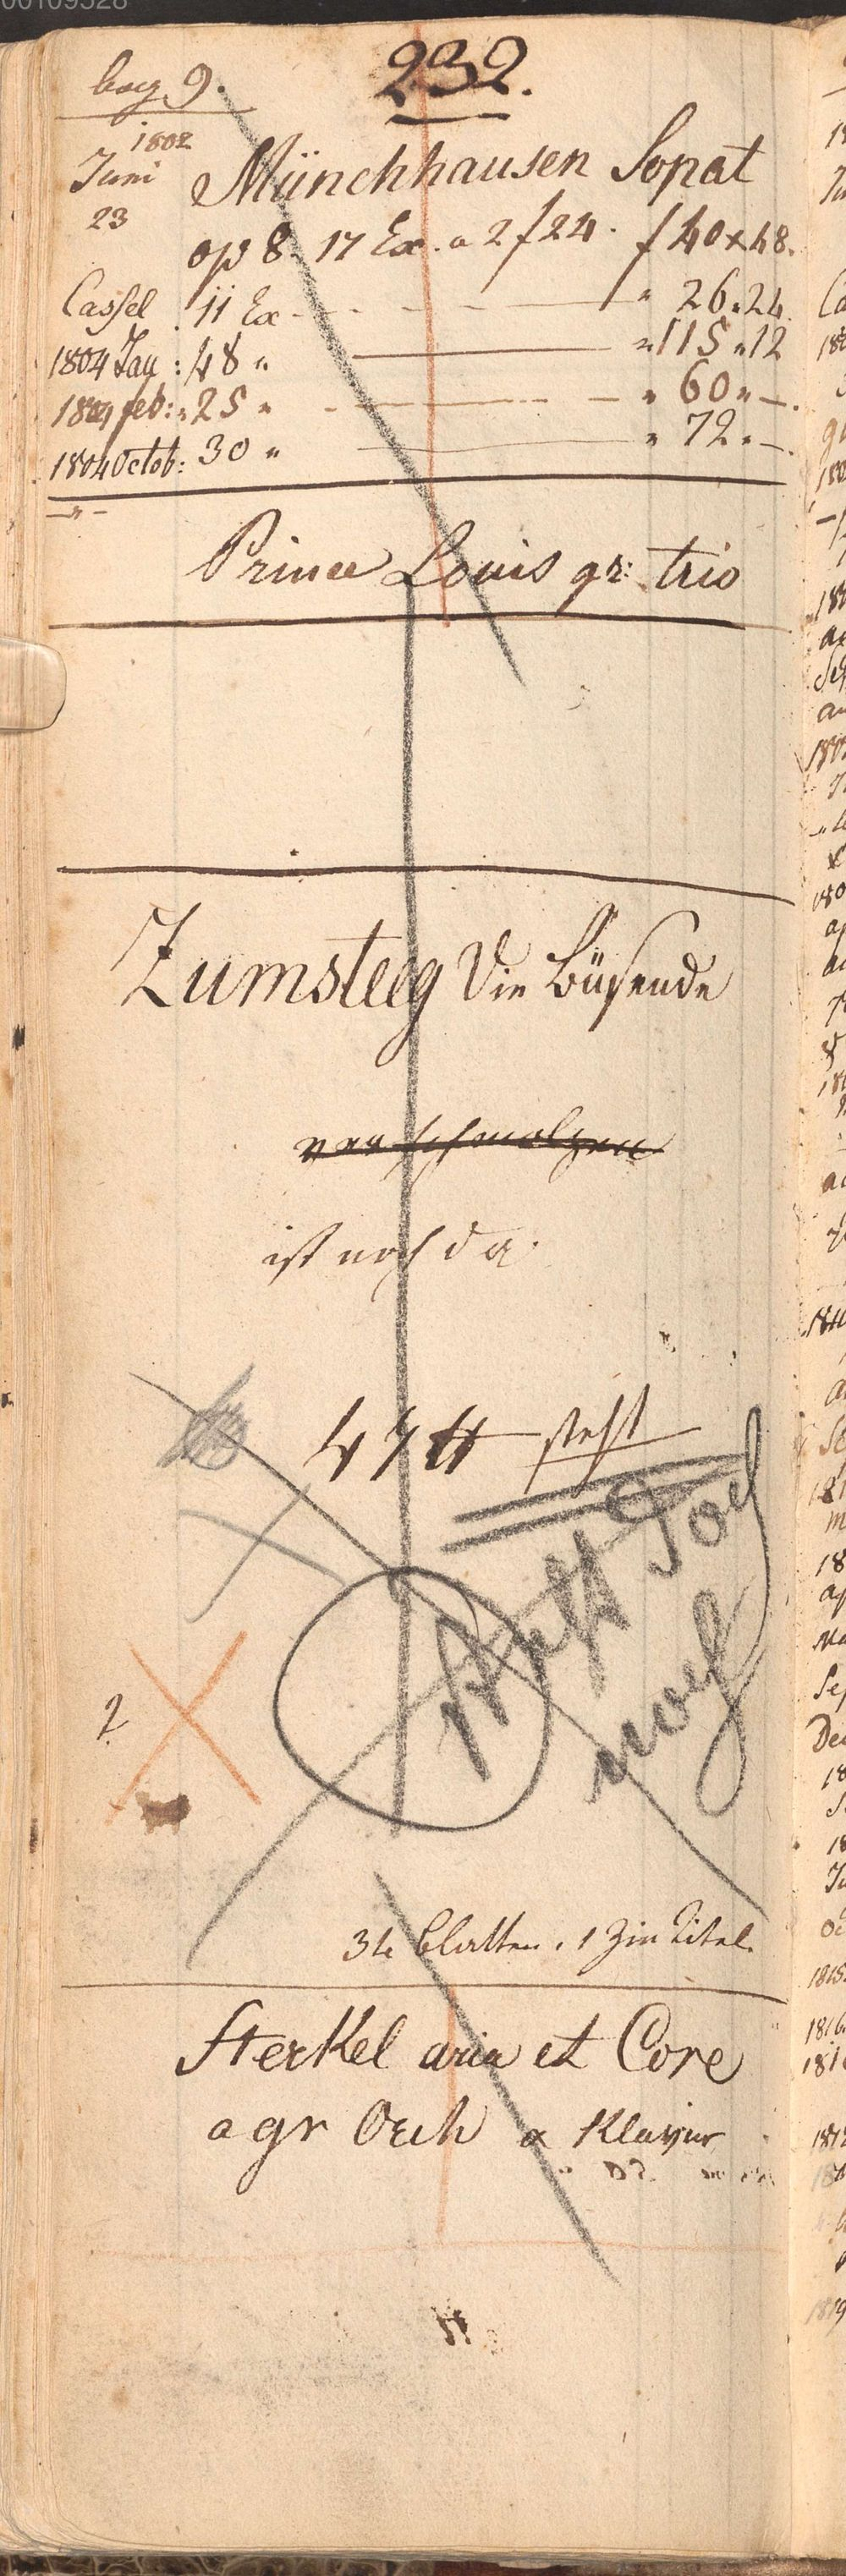 00109528
bog 9.
232.
1802
Juni
23
Münchhausen Sonat
op 8. 17 Ex. a 2 f 24. f 40 x 48.
Cassel 11 Ex - - - " 26 " 24.
1804 Jan: 48 " — " 115 " 12
1804 feb: " 25 " - - - " 60 " —.
1804 Octob: 30 " — " 72 " —.
— " —
Prince Louis gr: trio
Zumsteeg Die Büßende
verschmolzen
ist noch da.
47 ℔ steht
steht
noch
2
34 Platten. 1 Zin Titel.
Sterkel aria et Core
a gr Orch a Klavier